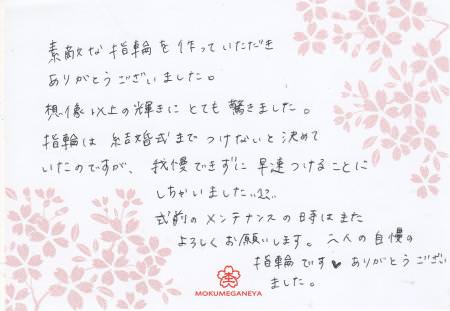 素敵な指輪を作っていただき
ありがとうございました。
想像以上の輝きにとても驚きました。
指輪は結婚式までつけないと決めて
いたのですが、我慢できずに早速つけることに
しちゃいました…
式前のメンテナンスの時はまた
よろしくお願いします。二人の自慢の
指輪です♥ ありがとうござい
ました。
MOKUMEGANEYA